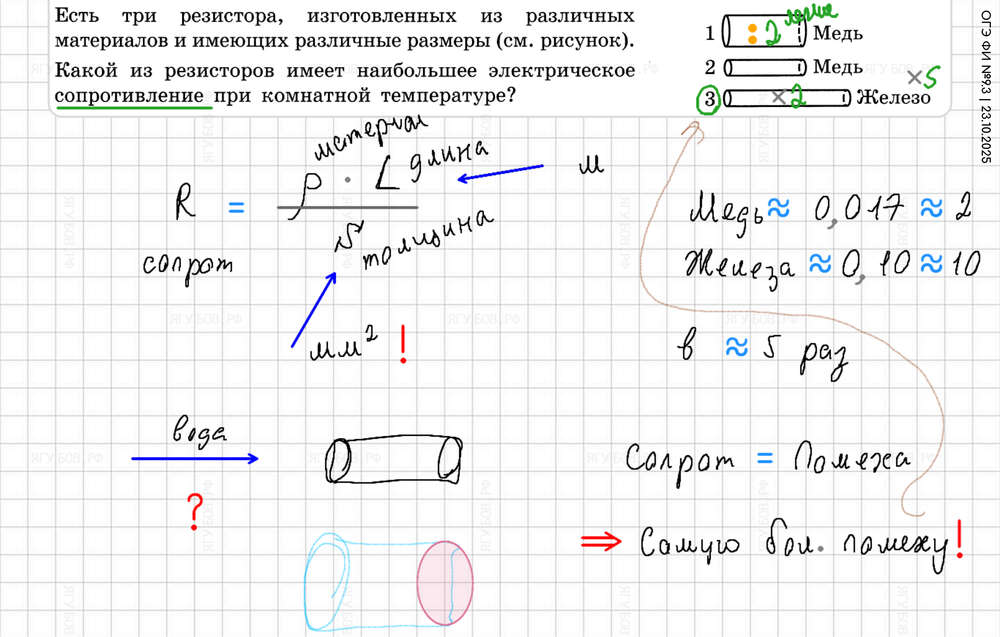 Есть три резистора, изготовленных из различных
материалов и имеющих различные размеры (см. рисунок).
Какой из резисторов имеет наибольшее электрическое
сопротивление при комнатной температуре?
1 : 2 Медь
2 Медь
×5
3 ×2 Железо
ОГЭ ФИ №9.3 | 23.10.2025
материал
R = ρ · L длина
S толщина
сопрот
м
мм² !
Медь ≈ 0,017 ≈ 2
Железа ≈ 0,10 ≈ 10
в ≈ 5 раз
вода
?
Сопрот = Помеха
⇒ Самую бол. помеху!
ЯГУБОВ.РФ